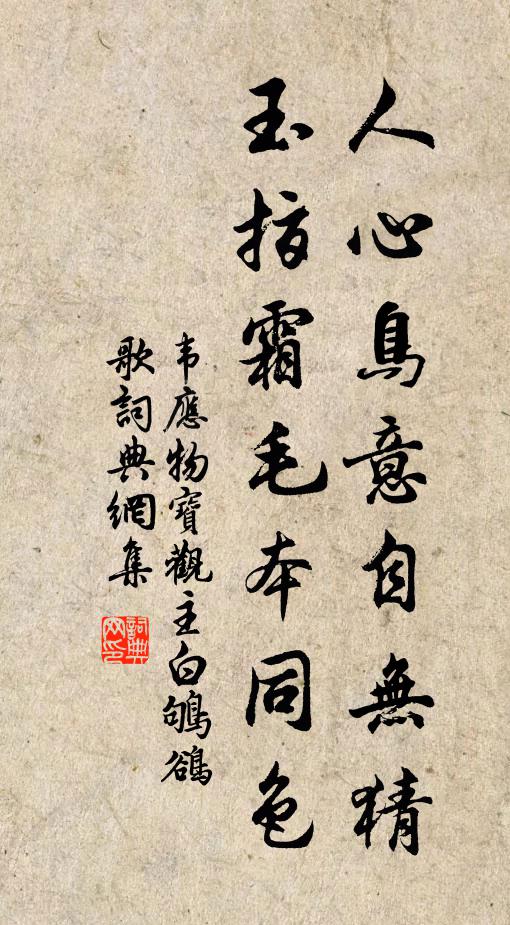 人心鳥意自無猜
玉指霜毛本同色
韦應物寶觀主白鴝鵒
歌詞典網集
詞典网印